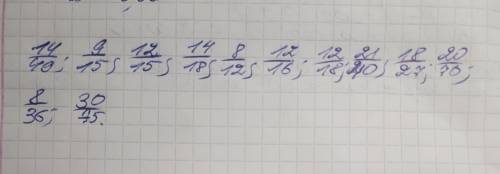 14/49; 9/15; 12/15; 14/18; 8/12; 12/16; 12/18; 21/40; 18/27; 20/70;
8/36; 30/75.